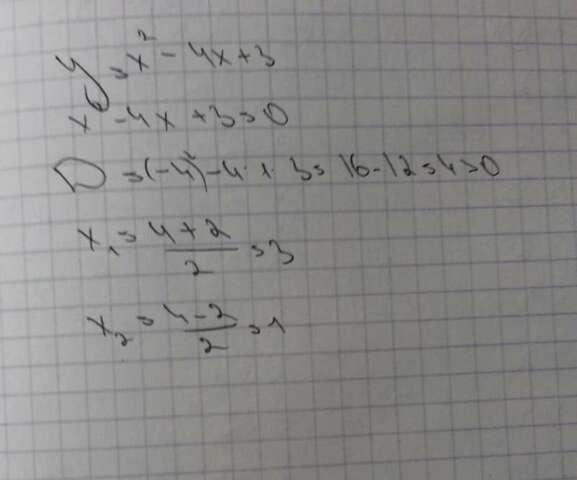 y = x² - 4x + 3
x² - 4x + 3 = 0
D = (-4)² - 4·1·3 = 16 - 12 = 4 > 0
x₁ = (4 + 2)/2 = 3
x₂ = (4 - 2)/2 = 1